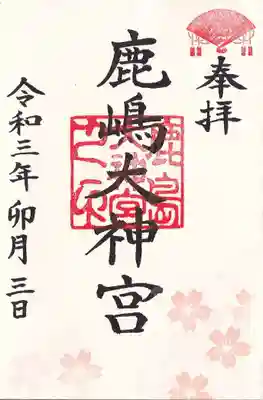 奉拝
鹿嶋大神宮
令和三年 卯月 三日